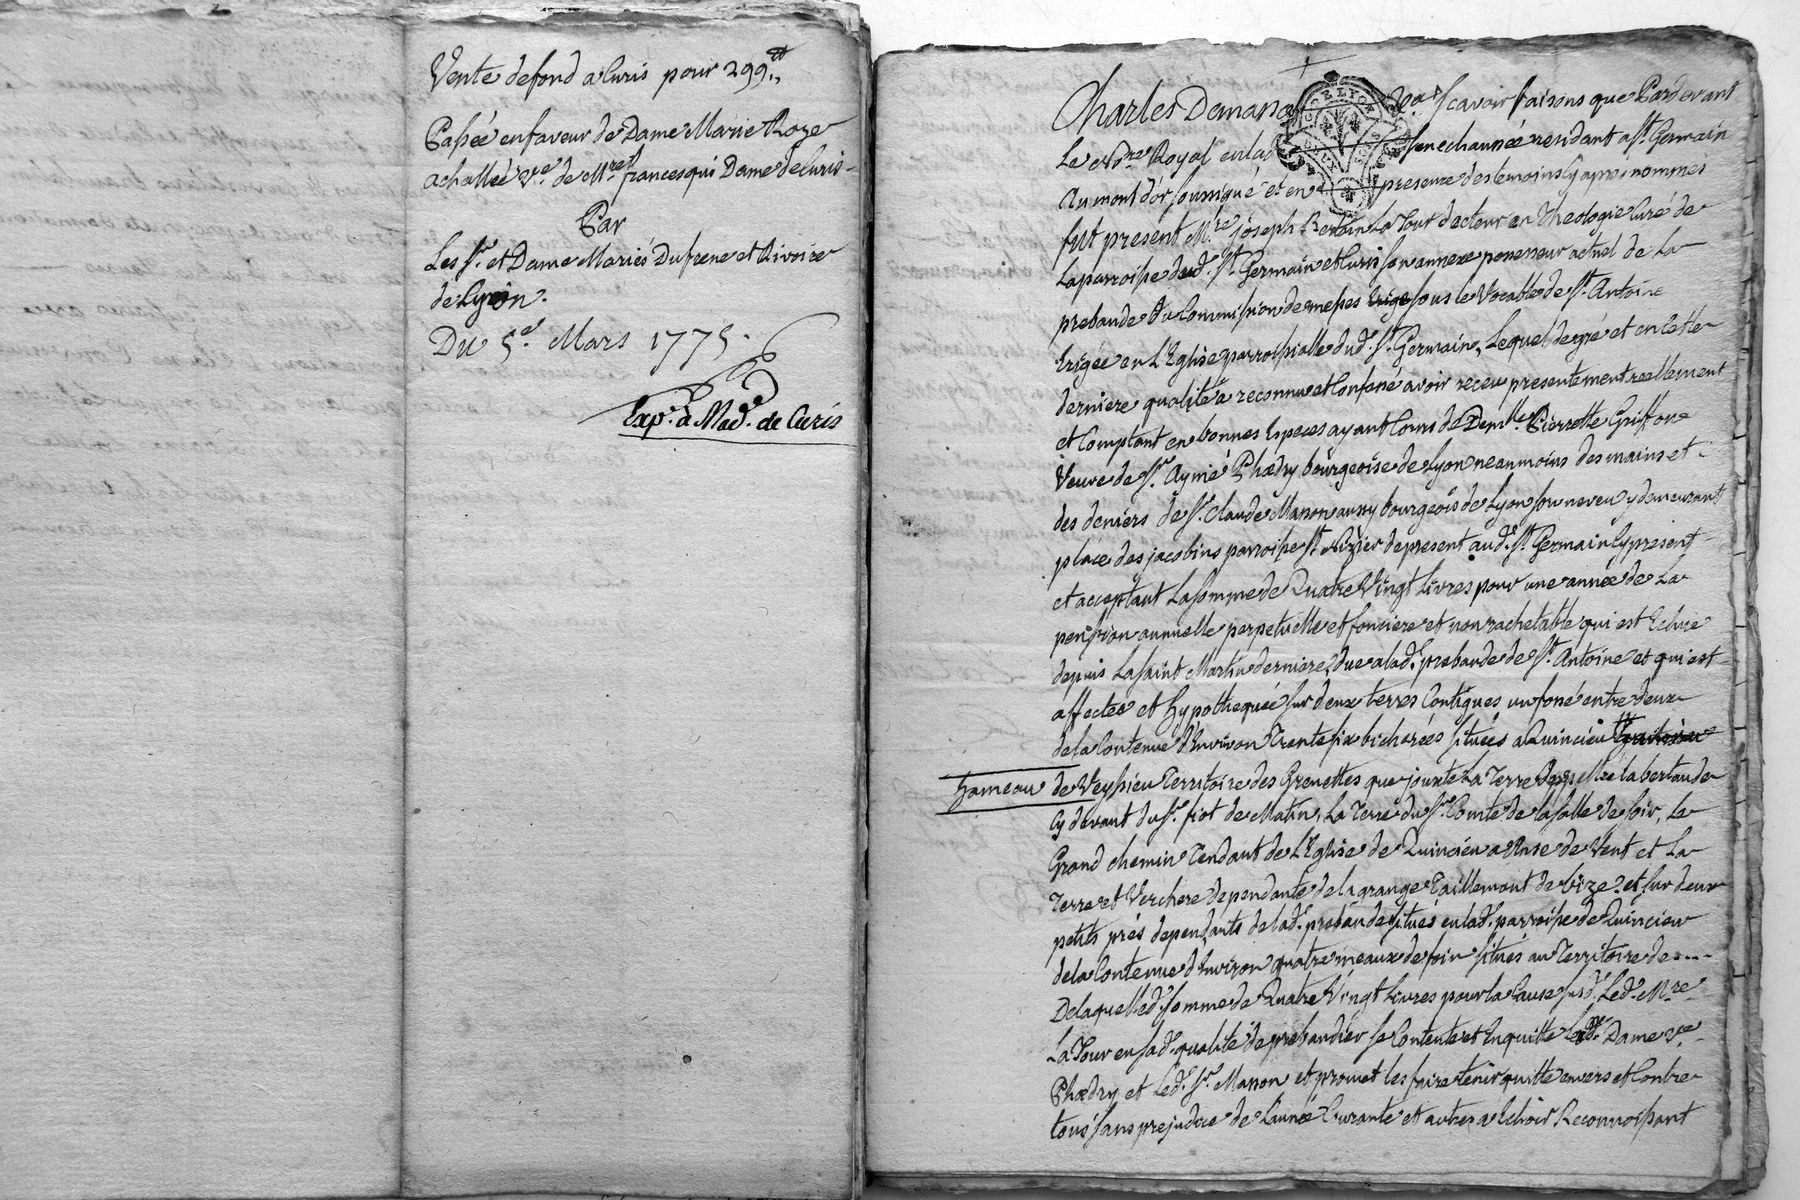 Vente de fond a Curis pour 299 ₶
Passée en faveur de Dame Marie Roze
achallée ve. de Mre. francesqui Dame de Curis
Par
Les Sr. et Dame Mariés Dufrene et Rivoire
de Lyon.
Du 5e. Mars 1775.
Exp. a Mad. de Curis
Charles Demanson scavoir faisons que Pardevant
Le Nore Royal en la senechaussée residant a St. Germain
Au mont d'or soussigné et en presence des temoins cy apres nommés
fut present Mre. joseph La Tour docteur en Theologie Curé de
La parroisse dud. St. Germain et Curis son annexe possesseur actuel de La
prebande ou Commission de messes sous le Vocable de St. Antoine
Erigée en L'Eglise parroissialle dud. St. Germain, Lequel de gré et en Cette
derniere qualité a reconnu et Confessé avoir receu presentement reellement
et Comptant en bonnes Especes ayant Cours de Demlle. Pierrette Griffon
Veuve de Sr. Aymé Phædry bourgeoise de Lyon neanmoins des mains et
des deniers de Sr. Claude Masson aussy bourgeois de Lyon son neveu y demeurant
place des jacobins parroisse St. Nizier de present aud. St. Germain Cy present
et acceptant La somme de Quatre Vingt Livres pour une année de La
pension annuelle perpetuelle et fonciere et non rachetable qui est Echue
depuis La saint Martin derniere, due a lad. prebande de St. Antoine et qui est
affectée et hypothequée sur deux terres Contigues un fossé entre deux
de la Contenue d'Environ Trente six bicherées situées a Quincieu
hameau de Veyssieu Territoire des Grenettes que jouxte La Terre
Cy devant du Sr. fiot de Matin, La Terre du Sr. Comte de la salle de soir, Le
Grand chemin Tendant de L'Eglise de Quincieu a Anse de Vent et La
Terre et Verchere dependante de la grange Taillemont de bize. et sur deux
petits prés dependants de lad. prebande situés en lad. parroisse de Quincieu
de la Contenue d'Environ quatre meaux de foin situés au Territoire de ....
De laquelle d. somme de Quatre Vingt Livres pour la Cause susd. Led. Mre.
La Tour en sad. qualité de prebandier se Contente et Enquitte Lad. Dame Ve.
Phædry et Led. Sr. Masson et promet les faire tenir quitte envers et Contre
tous sans prejudice de L'année Courante et autres a Echoir Reconnoissant